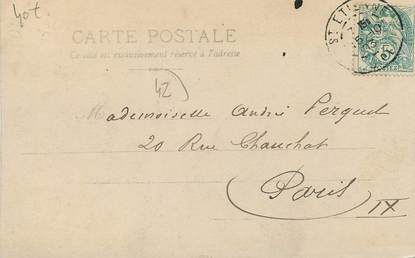 40t
CARTE POSTALE
Ce côté est exclusivement réservé à l'adresse
ST ETIENNE
42
Mademoiselle André Perquel
20 Rue Chauchat
Paris
IX